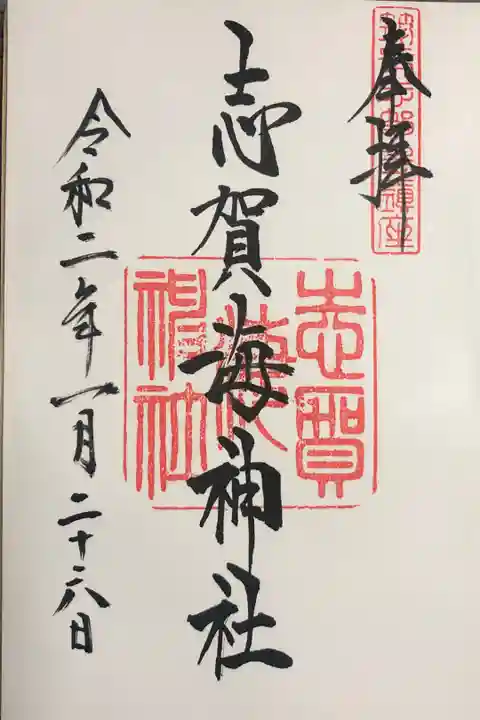 奉拝
志賀海神社
志賀海神社
令和二年一月二十六日